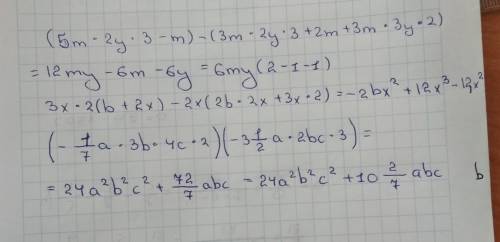 (5m · 2y · 3 - m) - (3m · 2y · 3 + 2m + 3m · 3y · 2)
= 12my - 6m - 6y = 6my(2 - 1 - 1)
3x · 2(b + 2x) - 2x(2b · 2x + 3x · 2) = -2bx² + 12x³ - 12x²
(-1/7 a · 3b · 4c · 2)(-3 1/2 a · 2bc · 3) =
= 24a²b²c² + 72/7 abc = 24a²b²c² + 10 2/7 abc b